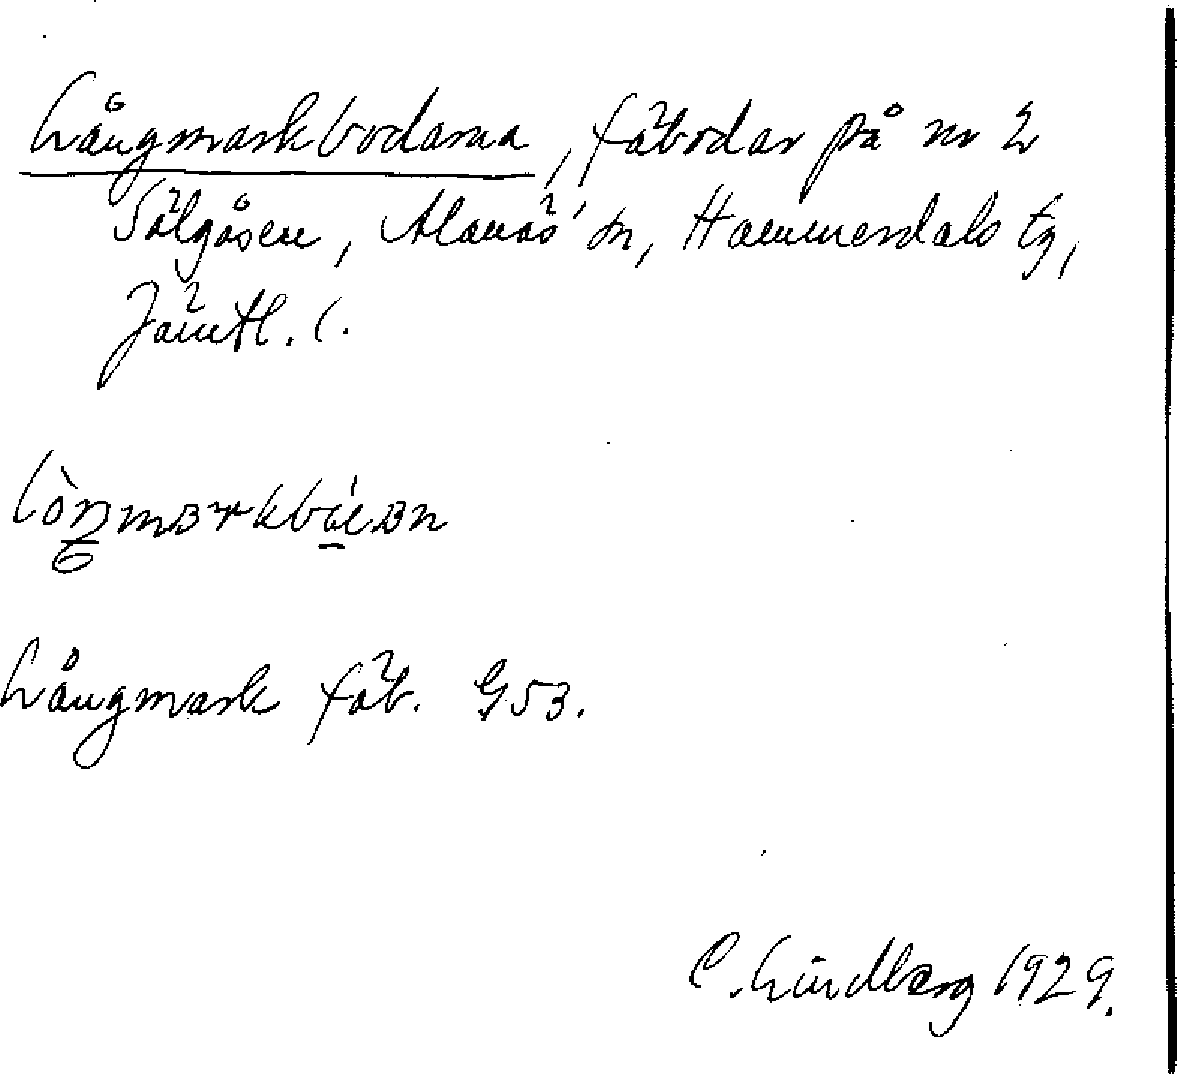 Långmarkbodarna, fäbodar på nr 2
Sälgåsen, Alanäs sn, Hammerdals tg,
Jämtl. l.
Långmark fäb. G53.
C. Lindberg 1929.